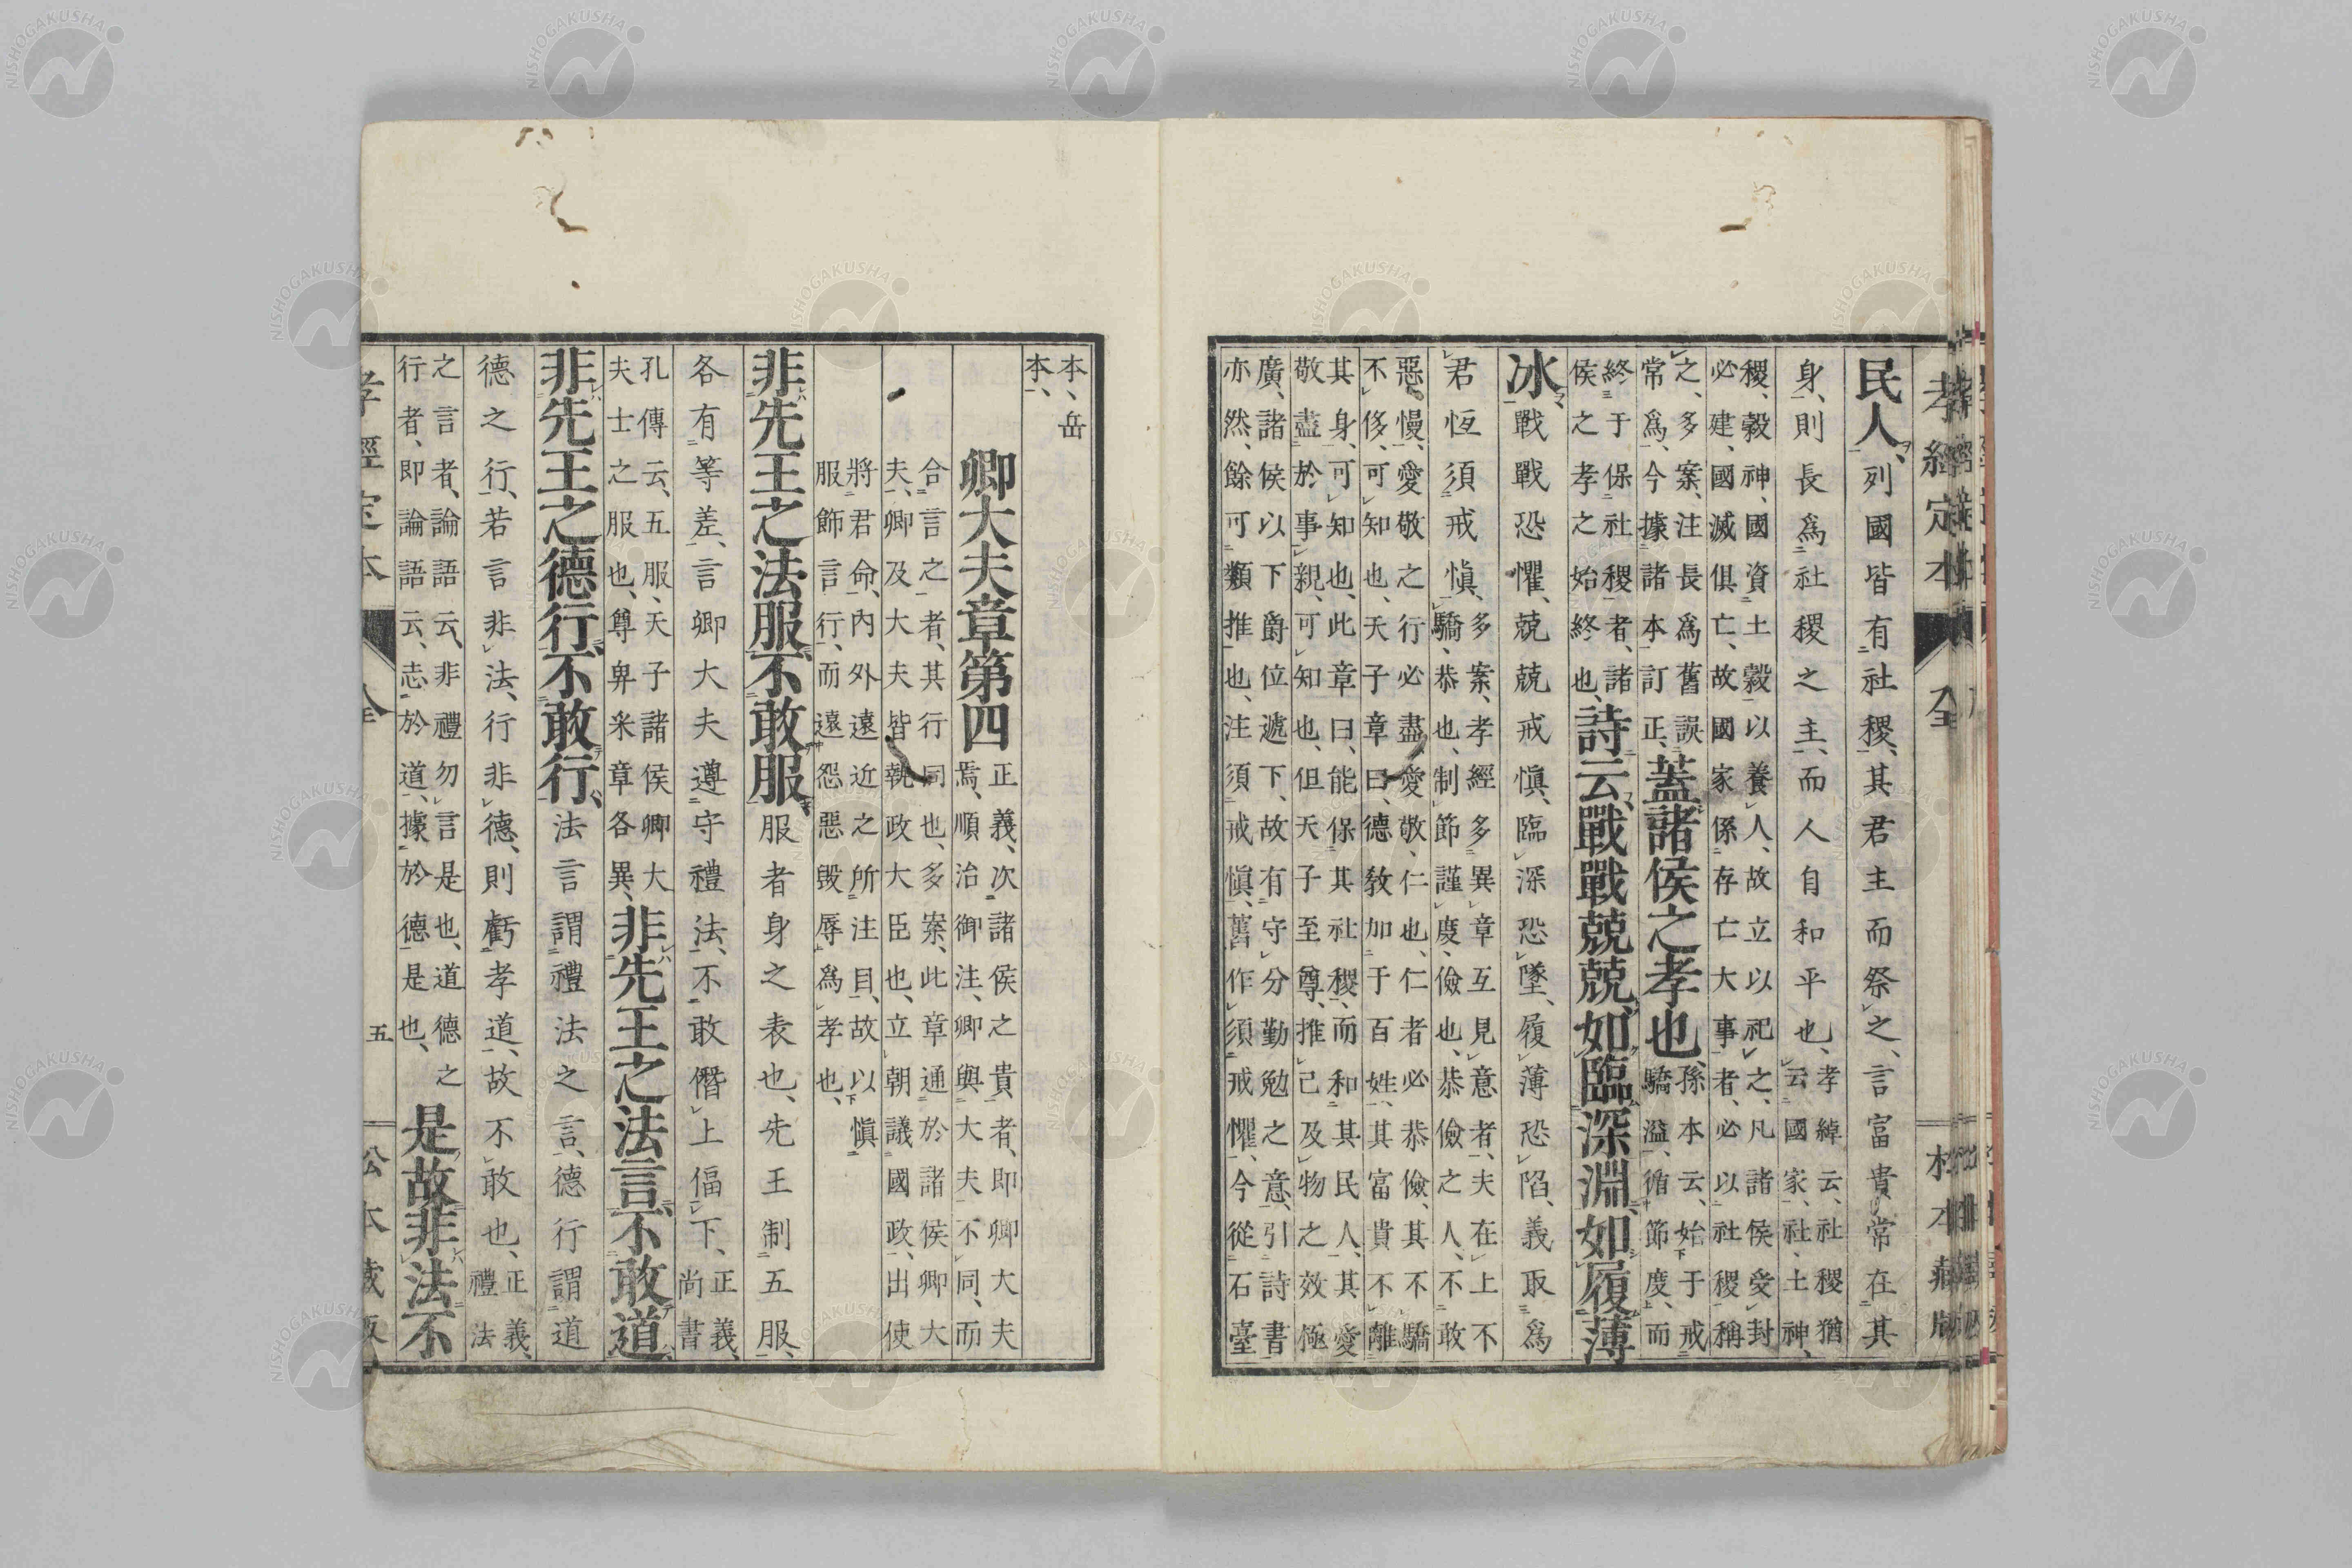 孝經定本 全 松本藏版
民人、列國皆有社稷、其君主而祭之、言富貴常在其
身、則長爲社稷之主、而人自和平也、孝緯云、社稷猶
云國家、社、土神、
稷、穀神、國資土穀以養人、故立以祀之、凡諸侯受封
必建、國滅俱亡、故國家係存亡大事者、必以社稷稱
之、多案、注長爲舊誤
常爲、今據諸本訂正、蓋諸侯之孝也、孫本云、始于戒
驕溢、循節度、而
終于保社稷者、諸
侯之孝之始終也、詩云、戰戰兢兢、如臨深淵、如履薄
冰、戰戰恐懼、兢兢戒愼、臨深恐墜、履薄恐陷、義取爲
君恆須戒愼、多案、孝經多異章互見意者、夫在上不
驕、恭也、制節謹度、儉也、恭儉之人、不敢
惡慢、愛敬之行必盡愛敬、仁也、仁者必恭儉、其不驕
不侈、可知也、天子章曰、德敎加于百姓、其富貴不離
其身、可知也、此章曰、能保其社稷、而和其民人、其愛
敬盡於事親、可知也、但天子至尊、推己及物之效極
廣、諸侯以下爵位遞下、故有守分勤勉之意、引詩書
亦然、餘可類推也、注須戒愼、舊作須戒懼、今從石臺
本、岳
本、
卿大夫章第四 正義、次諸侯之貴者、即卿大夫
焉、順治御注、卿與大夫不同、而
合言之者、其行同也、多案、此章通於諸侯卿大
夫、卿及大夫皆執政大臣也、立朝議國政、出使
將君命、內外遠近之所注目、故以愼
服飾言行、而遠怨惡毀辱爲孝也、
非先王之法服、不敢服、服者身之表也、先王制五服、
各有等差、言卿大夫遵守禮法、不敢僭上偪下、正義、
尚書
孔傳云、五服、天子諸侯卿大
夫士之服也、尊卑采章各異、非先王之法言、不敢道、
非先王之德行、不敢行、法言謂禮法之言、德行謂道
德之行、若言非法、行非德、則虧孝道、故不敢也、正義、
禮法
之言者、論語云、非禮勿言是也、道德之
行者、即論語云、志於道、據於德是也、是故非法不
孝經定本 全 五 松本藏版
NISHOGAKUSHA